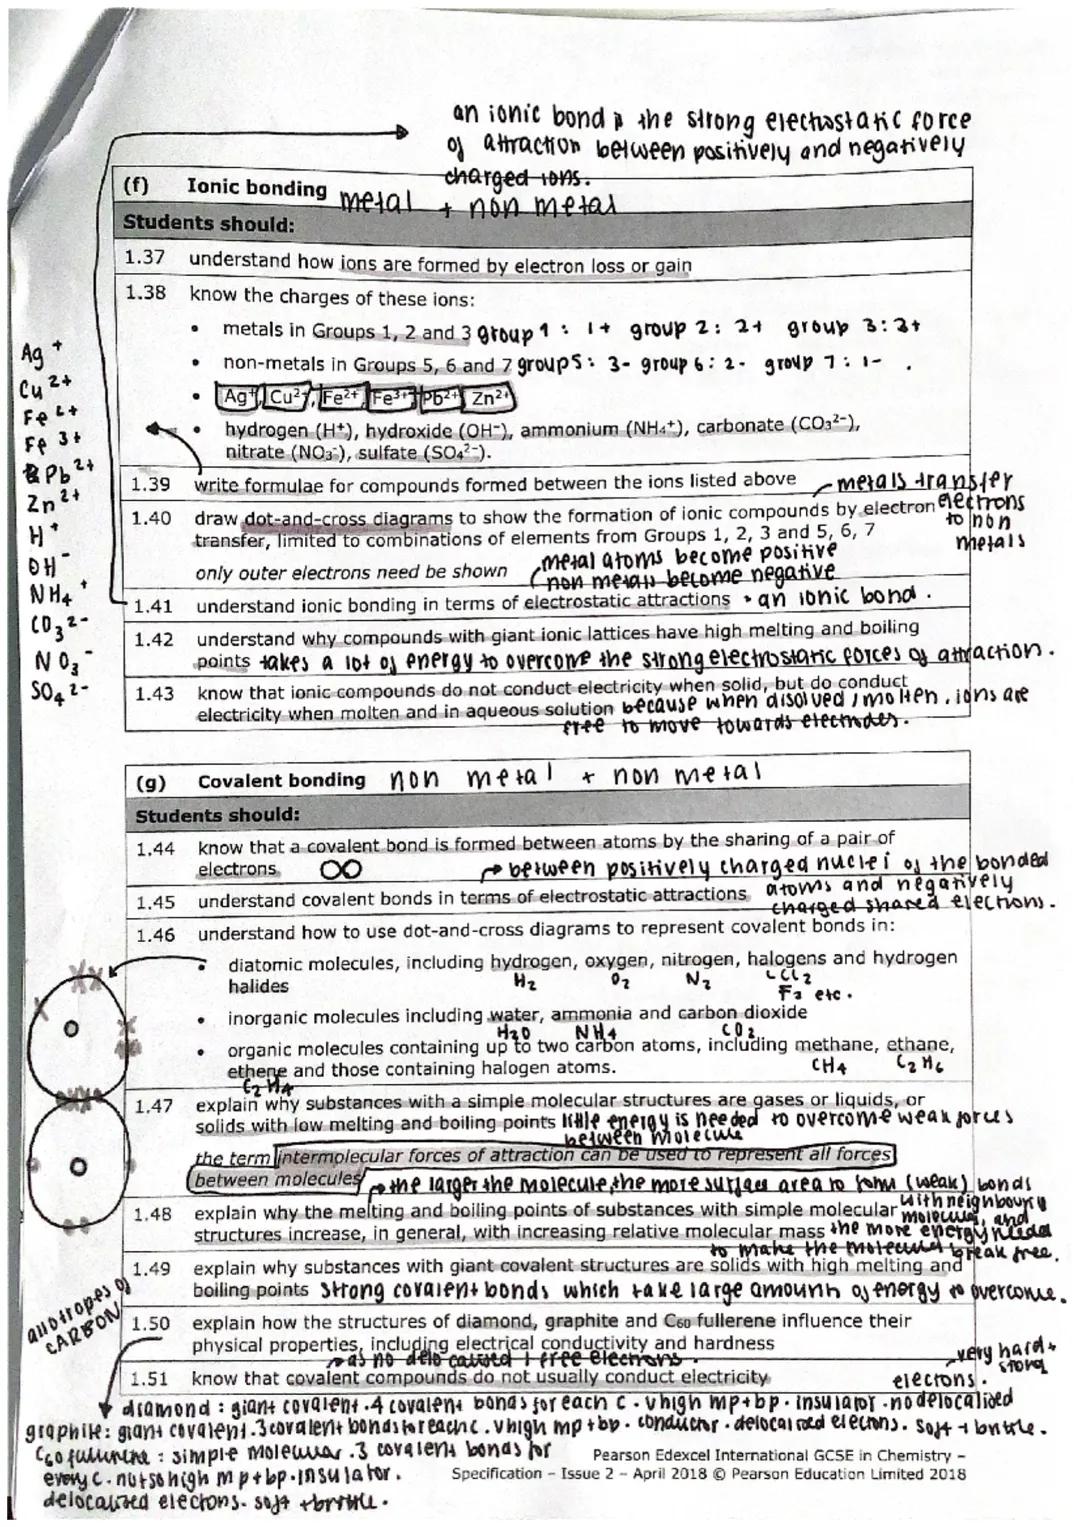 an ionic bond is the strong electrostatic force
of attraction between positively and negatively
charged ions.
(f) Ionic bonding metal + non metal
Students should:
1.37 understand how ions are formed by electron loss or gain
1.38 know the charges of these ions:
• metals in Groups 1, 2 and 3 group 1 : 1+ group 2: 2+ group 3: 3+
• non-metals in Groups 5, 6 and 7 group 5: 3- group 6: 2- group 7: 1- .
• Ag⁺, Cu²⁺, Fe²⁺, Fe³⁺, Pb²⁺, Zn²⁺
• hydrogen (H⁺), hydroxide (OH⁻), ammonium (NH₄⁺), carbonate (CO₃²⁻),
nitrate (NO₃⁻), sulfate (SO₄²⁻).
Ag⁺
Cu²⁺
Fe²⁺
Fe³⁺
Pb²⁺
Zn²⁺
H⁺
OH⁻
NH₄⁺
CO₃²⁻
NO₃⁻
SO₄²⁻
1.39 write formulae for compounds formed between the ions listed above
metals transfer
electrons
to non
metals
1.40 draw dot-and-cross diagrams to show the formation of ionic compounds by electron
transfer, limited to combinations of elements from Groups 1, 2, 3 and 5, 6, 7
only outer electrons need be shown
metal atoms become positive
non metals become negative
1.41 understand ionic bonding in terms of electrostatic attractions • an ionic bond .
1.42 understand why compounds with giant ionic lattices have high melting and boiling
points takes a lot of energy to overcome the strong electrostatic forces of attraction.
1.43 know that ionic compounds do not conduct electricity when solid, but do conduct
electricity when molten and in aqueous solution because when disolved / molten , ions are
free to move towards electrodes.
(g) Covalent bonding non metal + non metal
Students should:
1.44 know that a covalent bond is formed between atoms by the sharing of a pair of
electrons
between positively charged nuclei of the bonded
atoms and negatively
charged shared electrons.
1.45 understand covalent bonds in terms of electrostatic attractions
1.46 understand how to use dot-and-cross diagrams to represent covalent bonds in:
• diatomic molecules, including hydrogen, oxygen, nitrogen, halogens and hydrogen
halides H₂ O₂ N₂ Cl₂
F₂ etc.
• inorganic molecules including water, ammonia and carbon dioxide
H₂O NH₄ CO₂
• organic molecules containing up to two carbon atoms, including methane, ethane,
ethene and those containing halogen atoms. CH₄ C₂H₆
C₂H₄
1.47 explain why substances with a simple molecular structures are gases or liquids, or
solids with low melting and boiling points little energy is needed to overcome weak forces
between molecule
the term intermolecular forces of attraction can be used to represent all forces
between molecules
the larger the molecule, the more surface area to form (weak) bonds
with neighbouring
molecules, and
the more energy needed
to make the molecule break free.
1.48 explain why the melting and boiling points of substances with simple molecular
structures increase, in general, with increasing relative molecular mass
1.49 explain why substances with giant covalent structures are solids with high melting and
boiling points strong covalent bonds which take large amounts of energy to overcome.
allotropes of
CARBON
1.50 explain how the structures of diamond, graphite and C₆₀ fullerene influence their
physical properties, including electrical conductivity and hardness
as no delocalised / free electrons .
1.51 know that covalent compounds do not usually conduct electricity
very hard +
strong
elecrons.
diamond : giant covalent . 4 covalent bonds for each C . v high mp + bp . insulator . no delocalised
graphite: giant covalent . 3 covalent bonds for each c . v high mp + bp . conductor . delocalised elecrons. soft + brittle.
C₆₀ fullurene : simple molecular . 3 covalent bonds for
every C . not so high mp + bp . insulator .
delocalized elecrons. soft + brittle.
Pearson Edexcel International GCSE in Chemistry –
Specification – Issue 2 – April 2018 © Pearson Education Limited 2018